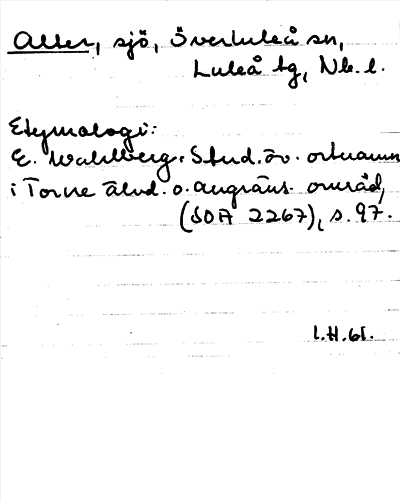 Alter, sjö, Överluleå sn,
Luleå tg, Nb. l.
Etymologi:
E. Wahlberg: Stud. öv. ortnamn
i Torne älvd. o. angräns. områd,
(SOA 2267), s. 97.
I.H. 61.